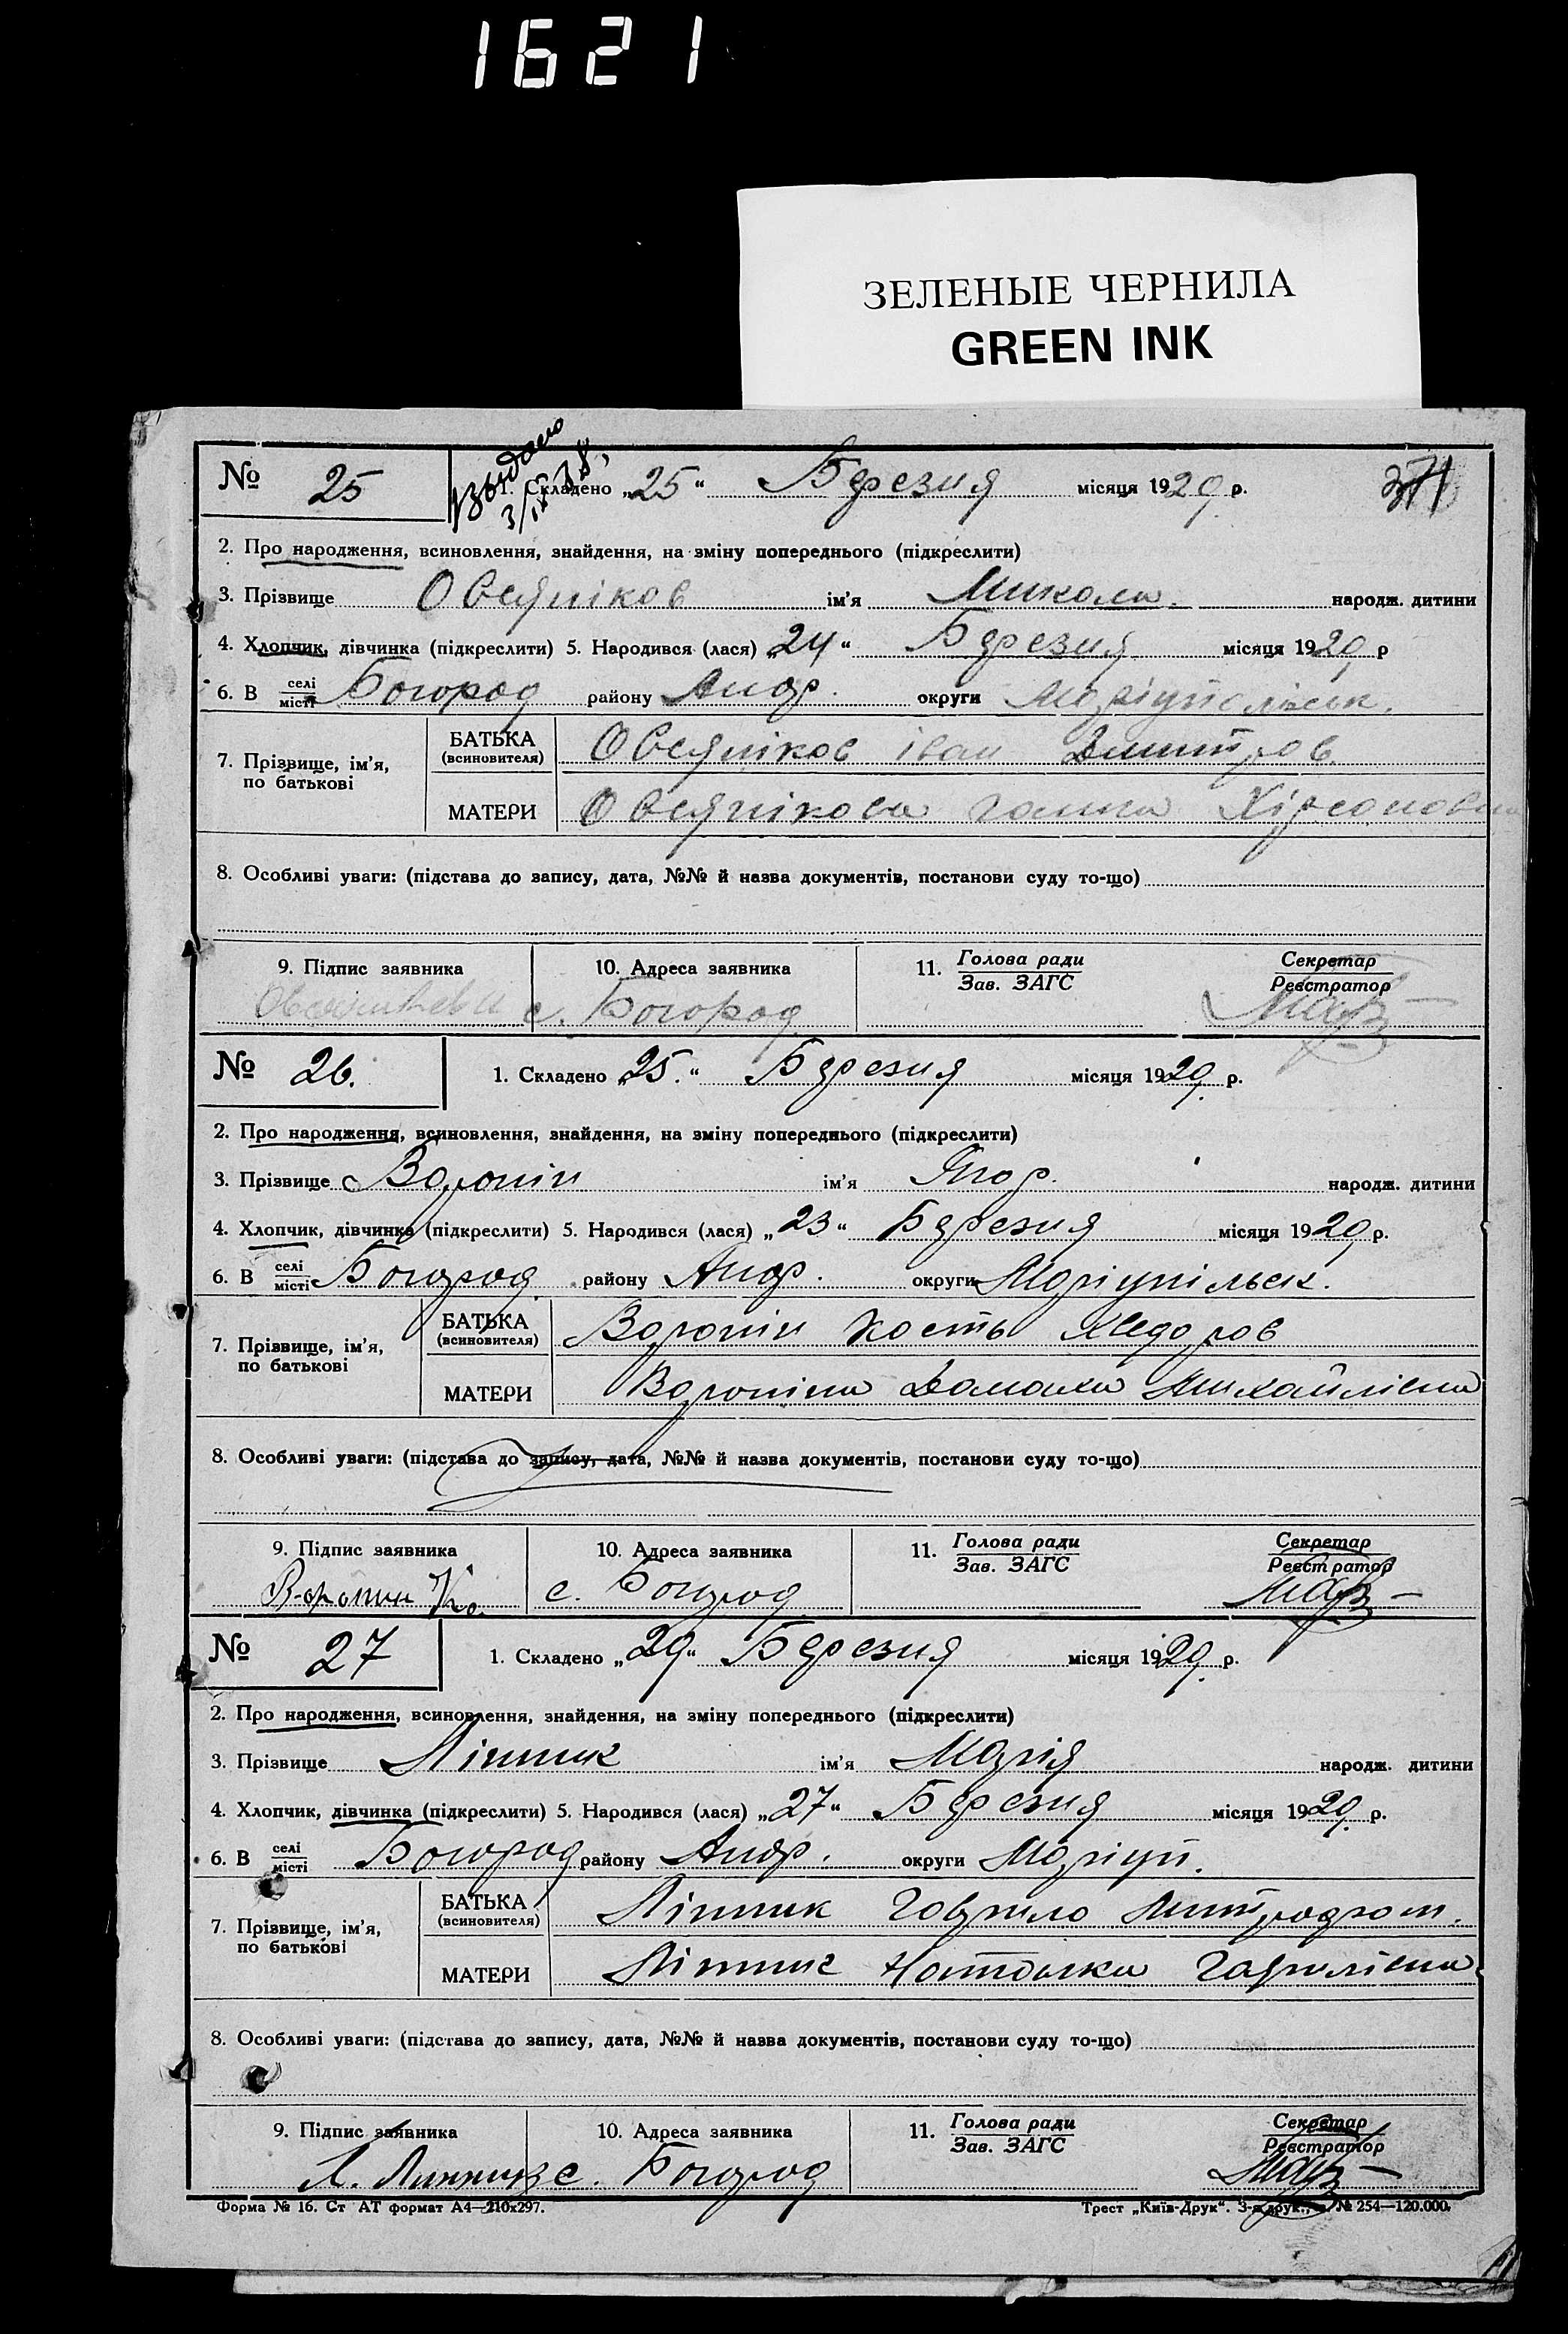 1621
ЗЕЛЕНЫЕ ЧЕРНИЛА
GREEN INK
№ 25
1. Складено „25“ Березня місяця 1929 р.
2. Про народження, всиновлення, знайдення, на зміну попереднього (підкреслити)
3. Прізвище Овсяніков ім'я Микола народж. дитини
4. Хлопчик, дівчинка (підкреслити) 5. Народився (лася) „24“ Березня місяця 1929 р
6. В селі місті Богород району Андр. округи Маріупільськ.
7. Прізвище, ім'я, по батькові
БАТЬКА (всиновителя) Овсяніков іван Дмитров.
МАТЕРИ Овсянікова Ганна
8. Особливі уваги: (підстава до запису, дата, №№ й назва документів, постанови суду то-що)
9. Підпис заявника 10. Адреса заявника 11. Голова ради Зав. ЗАГС Секретар Реєстратор
с. Богород
№ 26.
1. Складено „25.“ Березня місяця 1929 р.
2. Про народження, всиновлення, знайдення, на зміну попереднього (підкреслити)
3. Прізвище Воронін ім'я народж. дитини
4. Хлопчик, дівчинка (підкреслити) 5. Народився (лася) „23“ Березня місяця 1929 р.
6. В селі місті Богород району Андр. округи Маріупільськ.
7. Прізвище, ім'я, по батькові
БАТЬКА (всиновителя) Воронін Кость Хведоров
МАТЕРИ Вороніна Домаха Михайлівна
8. Особливі уваги: (підстава до запису, дата, №№ й назва документів, постанови суду то-що)
9. Підпис заявника 10. Адреса заявника 11. Голова ради Зав. ЗАГС Секретар Реєстратор
с. Богород
№ 27
1. Складено „29“ Березня місяця 1929 р.
2. Про народження, всиновлення, знайдення, на зміну попереднього (підкреслити)
3. Прізвище Лінник ім'я Марія народж. дитини
4. Хлопчик, дівчинка (підкреслити) 5. Народився (лася) „27“ Березня місяця 1929 р.
6. В селі місті Богород району Андр. округи Маріуп.
7. Прізвище, ім'я, по батькові
БАТЬКА (всиновителя) Лінник Гаврило
МАТЕРИ Лінник Наталка Гаврилівна
8. Особливі уваги: (підстава до запису, дата, №№ й назва документів, постанови суду то-що)
9. Підпис заявника 10. Адреса заявника 11. Голова ради Зав. ЗАГС Секретар Реєстратор
с. Богород
Форма № 16. Ст АТ формат А4—210х297.
Трест „Київ-Друк“. № 254—120.000.